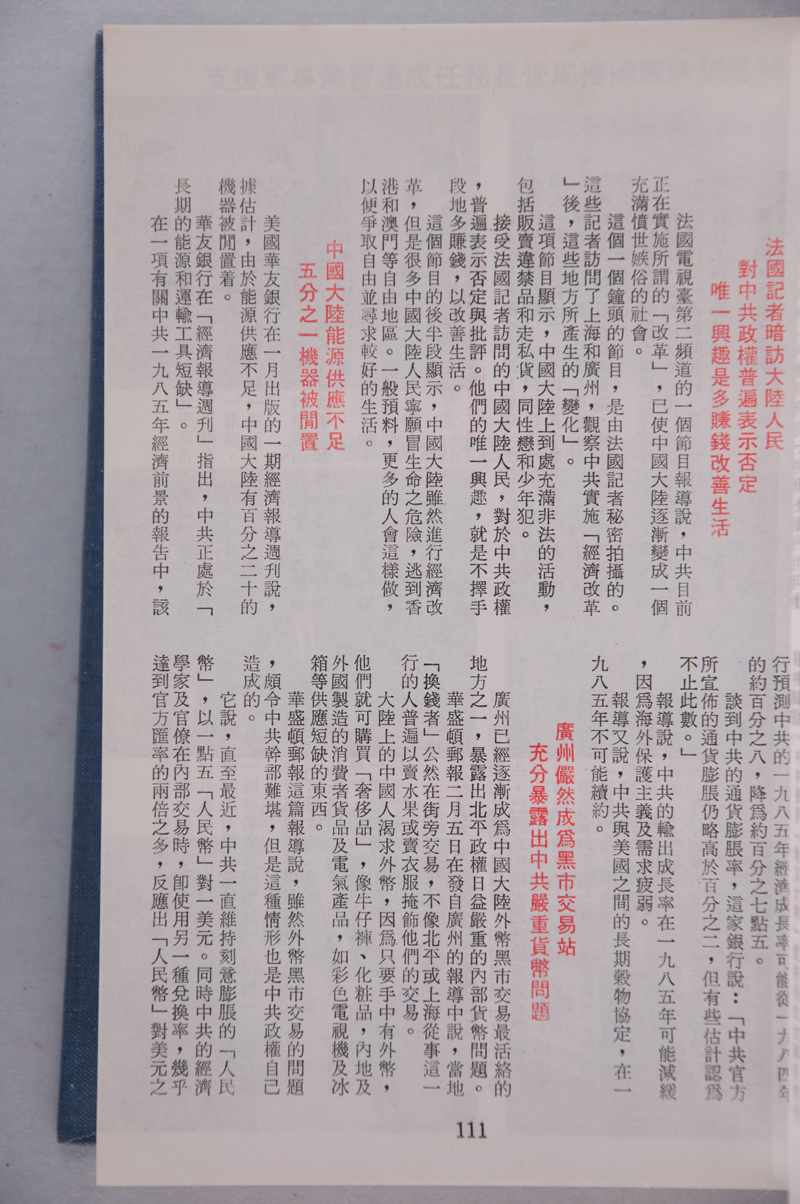 法國記者暗訪大陸人民
對中共政權普遍表示否定
唯一興趣是多賺錢改善生活
法國電視臺第二頻道的一個節目報導說，中共目前
正在實施所謂的「改革」，已使中國大陸逐漸變成一個
充滿憤世嫉俗的社會。
這個一個鐘頭的節目，是由法國記者秘密拍攝的。
這些記者訪問了上海和廣州，觀察中共實施「經濟改革
」後，這些地方所產生的「變化」。
這項節目顯示，中國大陸上到處充滿非法的活動，
包括販賣違禁品和走私貨，同性戀和少年犯。
接受法國記者訪問的中國大陸人民，對於中共政權
，普遍表示否定與批評。他們的唯一興趣，就是不擇手
段地多賺錢，以改善生活。
這個節目的後半段顯示，中國大陸雖然進行經濟改
革，但是很多中國大陸人民寧願冒生命之危險，逃到香
港和澳門等自由地區。一般預料，更多的人會這樣做，
以便爭取自由並尋求較好的生活。
中國大陸能源供應不足
五分之一機器被閒置
美國華友銀行在一月出版的一期經濟報導週刊說，
據估計，由於能源供應不足，中國大陸有百分之二十的
機器被閒置着。
華友銀行在「經濟報導週刊」指出，中共正處於「
長期的能源和運輸工具短缺」。
在一項有關中共一九八五年經濟前景的報告中，該
行預測中共的一九八五年經濟成長率可能從一九八四年
的約百分之八，降爲約百分之七點五。
談到中共的通貨膨脹率，這家銀行說：「中共官方
所宣佈的通貨膨脹仍略高於百分之二，但有些估計認爲
不止此數。」
報導說，中共的輸出成長率在一九八五年可能減緩
，因爲海外保護主義及需求疲弱。
報導又說，中共與美國之間的長期穀物協定，在一
九八五年不可能續約。
廣州儼然成爲黑市交易站
充分暴露出中共嚴重貨幣問題
廣州已經逐漸成爲中國大陸外幣黑市交易最活絡的
地方之一，暴露出北平政權日益嚴重的內部貨幣問題。
華盛頓郵報二月五日在發自廣州的報導中說，當地
「換錢者」公然在街旁交易，不像北平或上海從事這一
行的人普遍以賣水果或賣衣服掩飾他們的交易。
大陸上的中國人渴求外幣，因爲只要手中有外幣，
他們就可購買「奢侈品」，像牛仔褲、化粧品，內地及
外國製造的消費者貨品及電氣產品，如彩色電視機及冰
箱等供應短缺的東西。
華盛頓郵報這篇報導說，雖然外幣黑市交易的問題
，頗令中共幹部難堪，但是這種情形也是中共政權自己
造成的。
它說，直至最近，中共一直維持刻意膨脹的「人民
幣」，以一點五「人民幣」對一美元。同時中共的經濟
學家及官僚在內部交易時，卽使用另一種兌換率，幾乎
達到官方匯率的兩倍之多，反應出「人民幣」對美元之
111